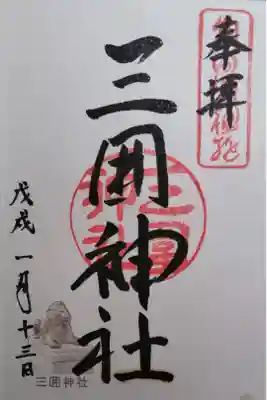 奉拝
三囲神社
戊戌 一月十三日
三囲神社